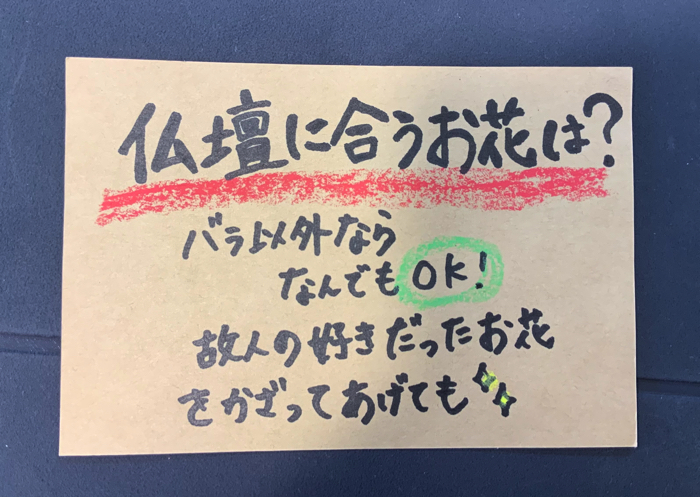 仏壇に合うお花は?
バラ以外なら
なんでもOK!
故人の好きだったお花
をかざってあげても